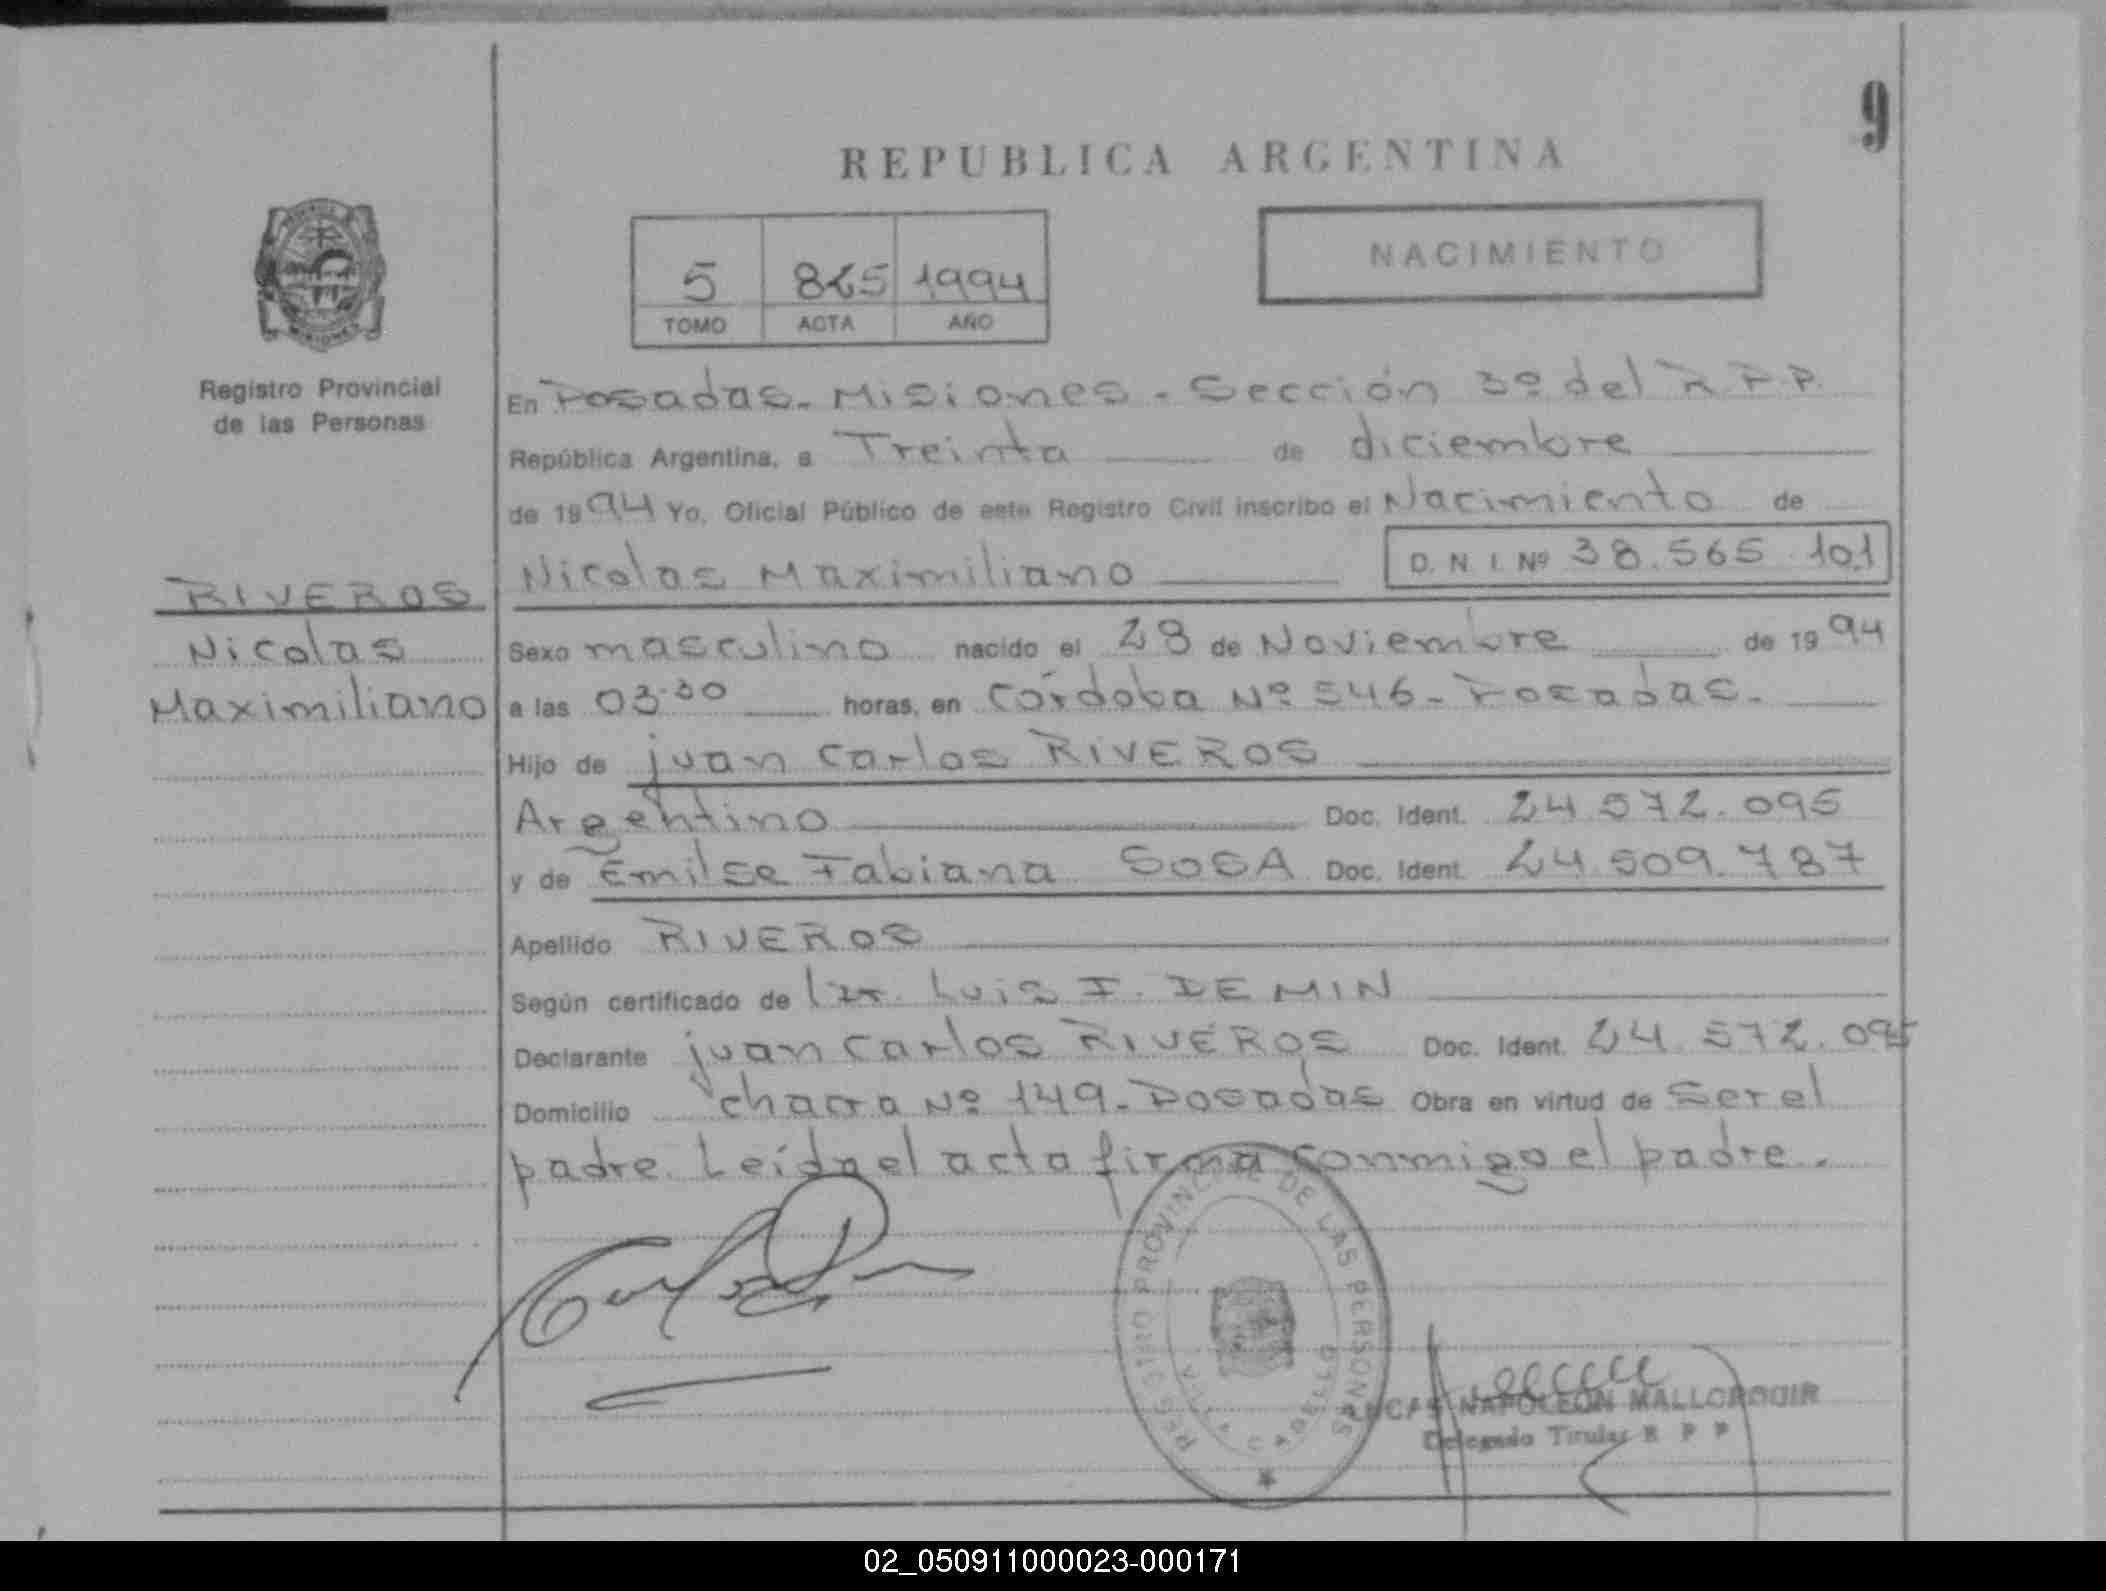 9
REPUBLICA ARGENTINA
NACIMIENTO
5 865 1994
TOMO ACTA AÑO
Registro Provincial
de las Personas
En Posadas - Misiones - Sección 3º del R.P.P.
República Argentina, a Treinta de diciembre
de 1994 Yo, Oficial Público de este Registro Civil inscribo el Nacimiento de
Nicolas Maximiliano D. N. I. Nº 38.565.101
RIVEROS
Nicolas
Maximiliano
Sexo masculino nacido el 28 de Noviembre de 1994
a las 03:30 horas, en Córdoba Nº 546 - Posadas.
Hijo de juan Carlos RIVEROS
Argentino Doc. Ident. 24.572.095
y de Emilse Fabiana SOSA Doc. Ident. 24.509.787
Apellido RIVEROS
Según certificado de Dr. Luis I. DEMIN
Declarante juan Carlos RIVEROS Doc. Ident. 24.572.095
Domicilio chacra Nº 149 - Posadas Obra en virtud de ser el
padre. Leída el acta firma conmigo el padre.
REGISTRO PROVINCIAL DE LAS PERSONAS
NAPOLEON MALLORQUIN
Delegado Titular R P P
02_050911000023-000171